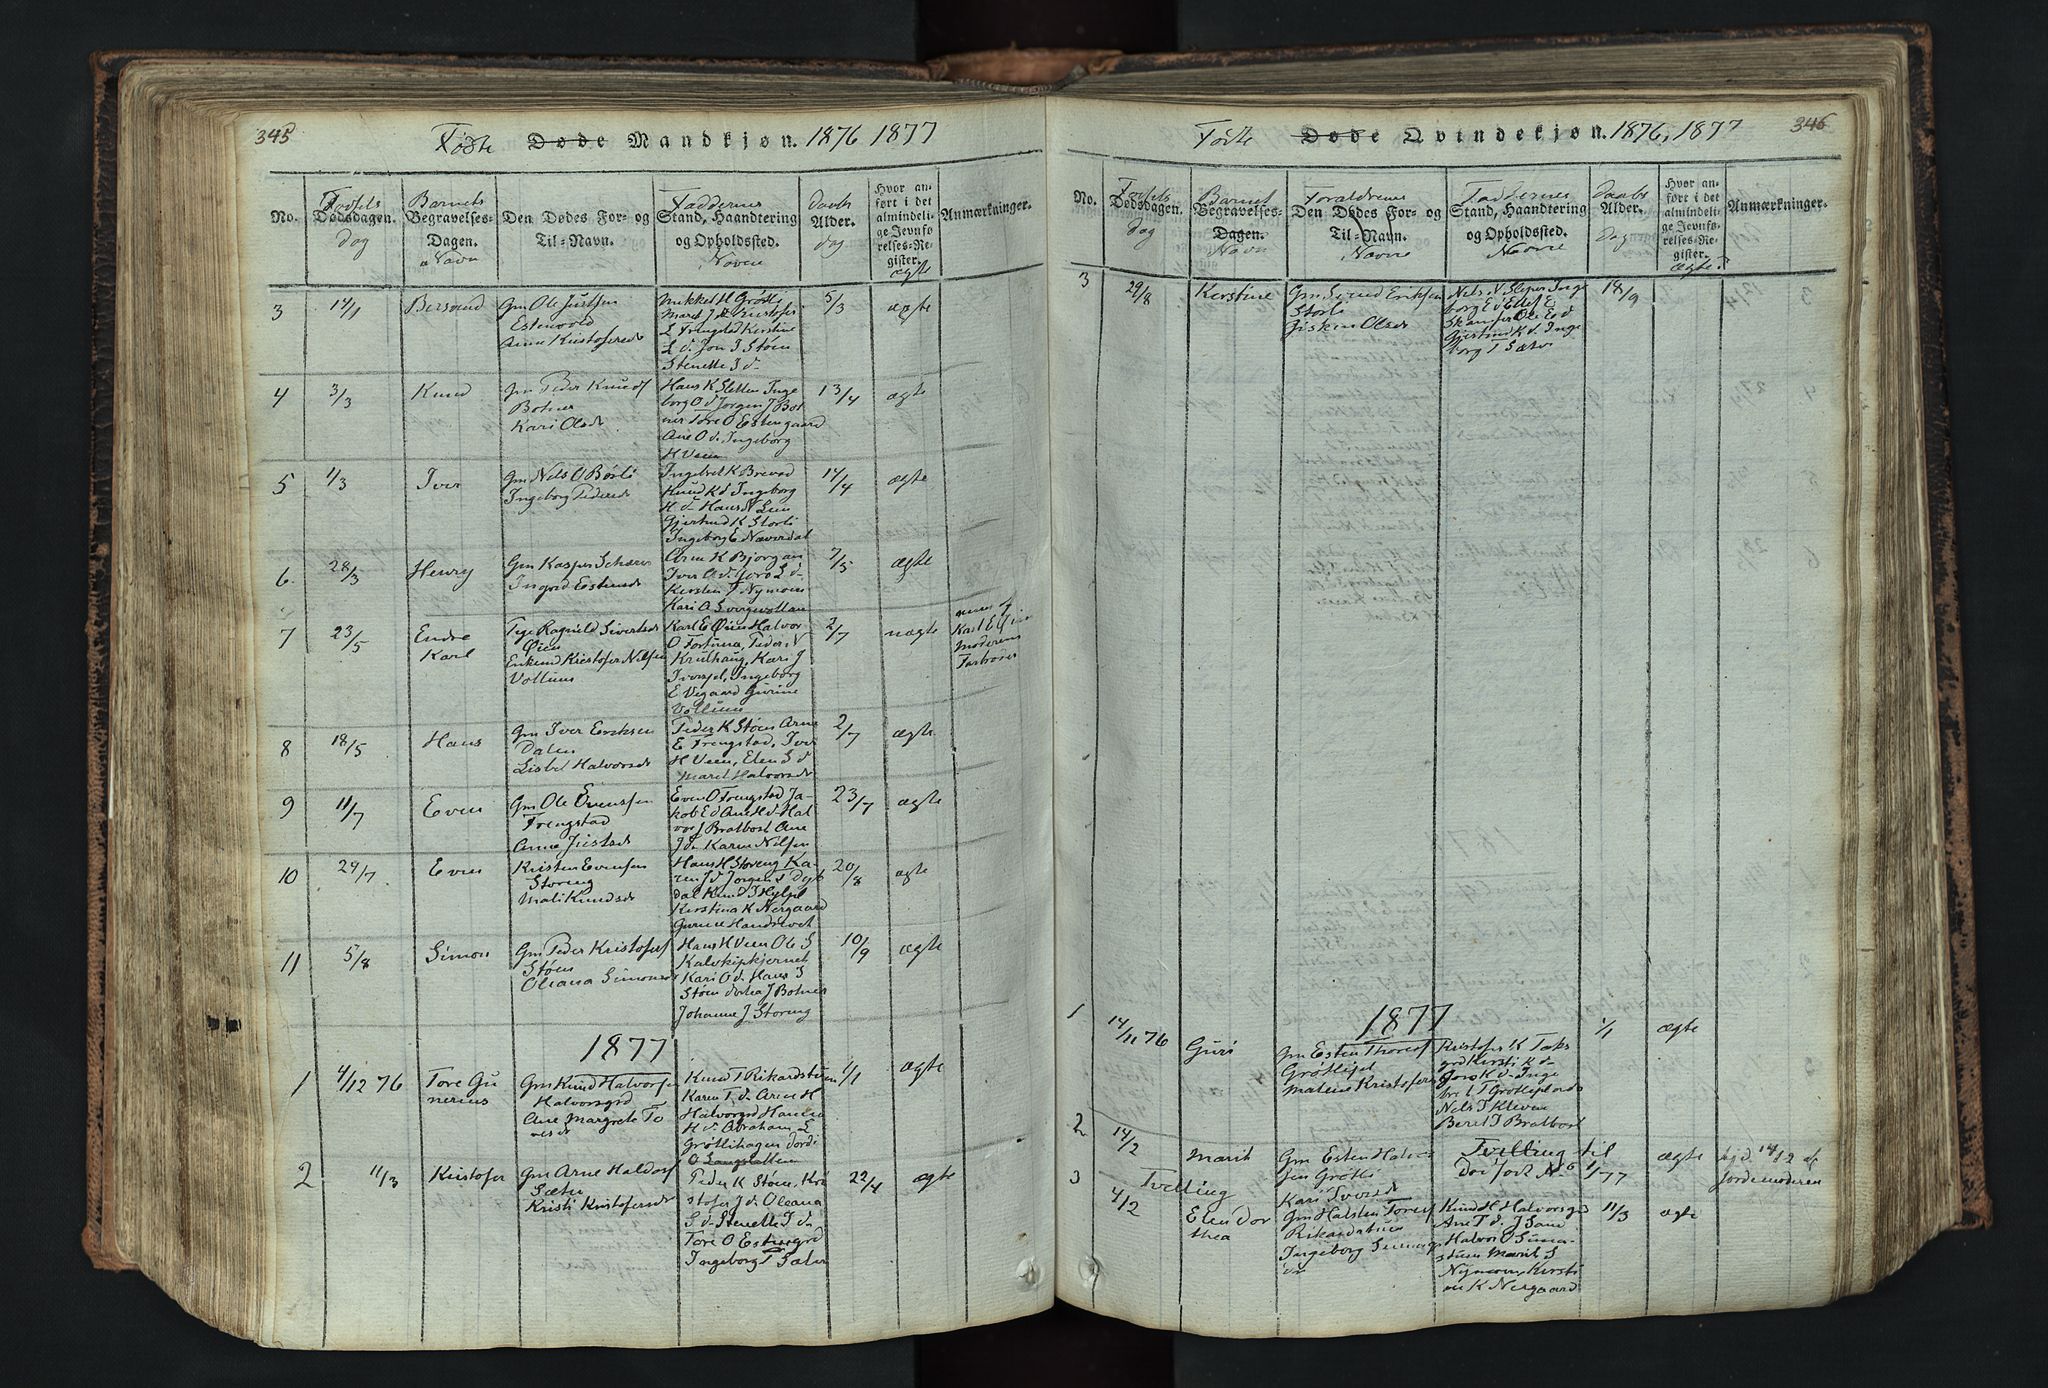 345
Fødte Døde Mandkjøn. 1876 1877
No.
Fødsels Dødsdagen. dag
Barnets Begravelses-Dagen. Navn
Den Dødes For- og Til-Navn.
Faddernes Stand, Haandtering og Opholdssted. Navne
Daabs Alder. dag
Hvor anført i det almindelige Jevnførelses-Register. ægte
Anmærkninger.
3 14/1 Bersvend
Gm Ole Justsen
Estenvold
Anne Kristofersd
Mikkel H Grøtli
Maret J d Kristofer
L Trengstad Kerstine
L d. Jon J Støen
Stenette J d
5/3 ægte
4 3/3 Knud
Gm Peder Knuds
Botner
Kari Olsd
Hans K Sletten Inge
borg O d Jørgen J Bot
ner Tore O Estengaard
Ane O d. Ingeborg
H Veen
13/4 ægte
5 1/3 Iver
Gm Nils O Børli
Ingeborg Pedersd
Ingebret K Brevad
Knud K d Ingeborg
H d Hans N Lien
Gjertrud K Storli
Ingeborg E Næverdal
14/4 ægte
6 28/3 Henry
Gm Kasper Schære
Ingrid Estensd
Arne K Bjørgan
Iver O d. Goro L d
Kersten J Nymoen
Kari O Svergvollen
7/5 ægte
7 23/5 Endre
Karl
Pige Ragnild Sivertsd
Øien
Enkemd Kristofer Nilsen
Vollum
Karl E Øien Halvor
O Fortuna, Peder N
Krukhaug, Kari J
Iverspl, Ingeborg
E Vegaard Gurine
Vollum
2/7 uægte
anm af
Karl E Øien
Moderens
Farbroder
8 18/5 Hans
Gm Iver Eriksen
Dalen
Lisbet Halvorsd
Peder K Støen Arne
E Trengstad, Iver
H Veen, Elen S d
Maret Halvorsd
2/7 ægte
9 11/7 Even
Gm Ole Evensen
Trengstad
Anne Jristad
Even O Trengstad Ja-
kob E d Ane H d Hal
vor J Bratbost Ane
J d. Karen Nilsen
23/7 ægte
10 29/7 Even
Kristen Evensen
Storeng
Mali Knudsd
Hans H Storeng Ka-
ren J d Jorgen T Dog
dal Knud J Hylpl
Kerstina K Nergaard
Gurine Handslovet
20/8 ægte
11 5/8 Simon
Gm Peder Kristofers
Støen
Oleana Simonsd
Hans H Veen Ole S
Kalvkipkjernet
Kari O d. Hans S
Støen Dortea J Botner
Johanne J Storeng
10/9 ægte
1877
1 4/12 76 Tore Gu
nerius
Gm Knud Halvorsen
Halvorsgrd
Ane Margrete To
resd
Knud T Rikardstuen
Karen T. d. Arne H
Halvorgrd Hanna
H d. Abraham E
Grøtlihagen Dordi
O Langsletten
1/1 ægte
2 11/3 Kristofer
Gm Arne Haldors
Sæter
Kristi Kristofersd
Peder K Støen, Kri
stofer J d. Oleana
S d Stenette J d
Tore O Estengrd
Ingeborg T Sæter
22/4 ægte
346
Fødte Døde Qvindekjøn. 1876, 1877
No.
Fødsels Dødsdagen. dag
Barnet Begravelses-Dagen. Navn
Foraldrenes Den Dødes For- og Til-Navn. Navne
Faddernes Stand, Haandtering og Opholdssted. Navne
Daabs Alder. Dag
Hvor anført i det almindelige Jevnførelses-Register. ægte?
Anmærkninger.
3 29/8 Kerstine
Gm Svend Eriksen
Storli
Gisken Olsd
Nils N Sleper Inge
borg E d Ellef E
Skamfer Ole E d
Gjertrud K d. Inge
borg T Sæter
18/9
1877
1 14/11 76 Guri
Gm Esten Thores
Grøtlipl
Malene Kristofers
Kristofer K Taks
grd Kersti K d
Jon K d. Inge
bri L T Grøtliplads
Nils T Kleven
Beret J Bratbost
1/1 ægte
2 14/2 Marit
Gm Esten Halvor
sen Grøtli
Kari Iversd
Tvelling til
Dødfødt No 6
1/77 ægte
hjd. 14/12 af
Jordemoderen
3 Tvelling
4/2 Elen Dor
thea
Gm Halsten Tores
Rikardstuen
Ingeborg Simens
dr
Knud H Halvorsgrd
Ane T d. J Sand
Halvor O Suna-
stuen Marit S
Nymoen, Kersti
ne K Nergaard
11/3 ægte